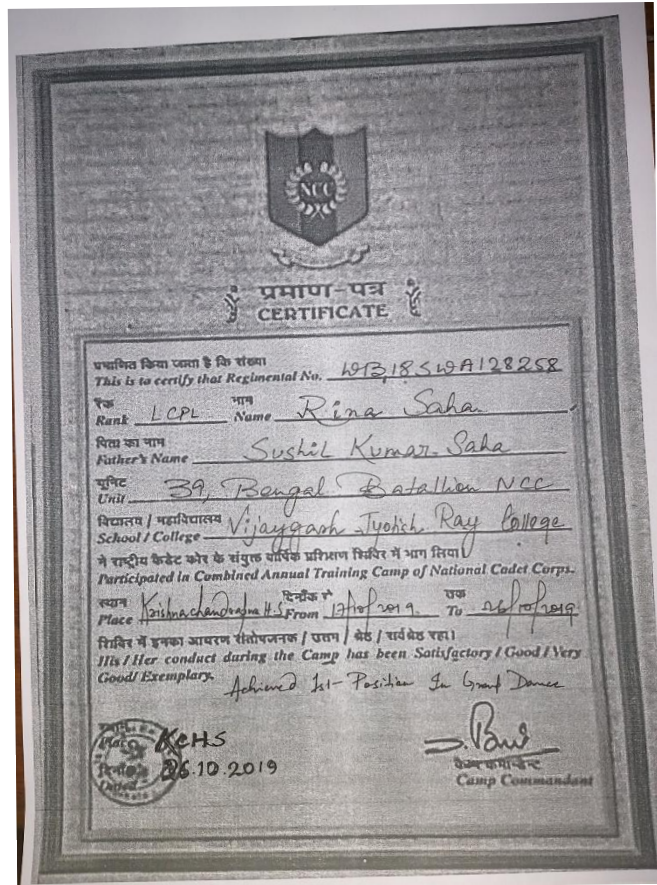 NCC
प्रमाण-पत्र
CERTIFICATE
प्रमाणित किया जाता है कि संख्या
This is to certify that Regimental No. WB18SWA128258
रैंक नाम
Rank LCPL Name Rina Saha
पिता का नाम
Father's Name Sushil Kumar Saha
यूनिट
Unit 39, Bengal Batallion NCC
विद्यालय / महाविद्यालय
School / College Vijaygarh Jyotish Ray College
ने राष्ट्रीय कैडेट कोर के संयुक्त वार्षिक प्रशिक्षण शिविर में भाग लिया।
Participated in Combined Annual Training Camp of National Cadet Corps.
स्थान दिनाँक से तक
Place H.S From 17/10/2019. To 26/10/2019
शिविर में इनका आचरण संतोषजनक / उत्तम / श्रेष्ठ / सर्वश्रेष्ठ रहा।
His / Her conduct during the Camp has been Satisfactory / Good / Very
Good / Exemplary.
Achieved 1st Position In Group Dance
KCHS
26.10.2019
Dated
कैम्प कमान्डेन्ट
Camp Commandant